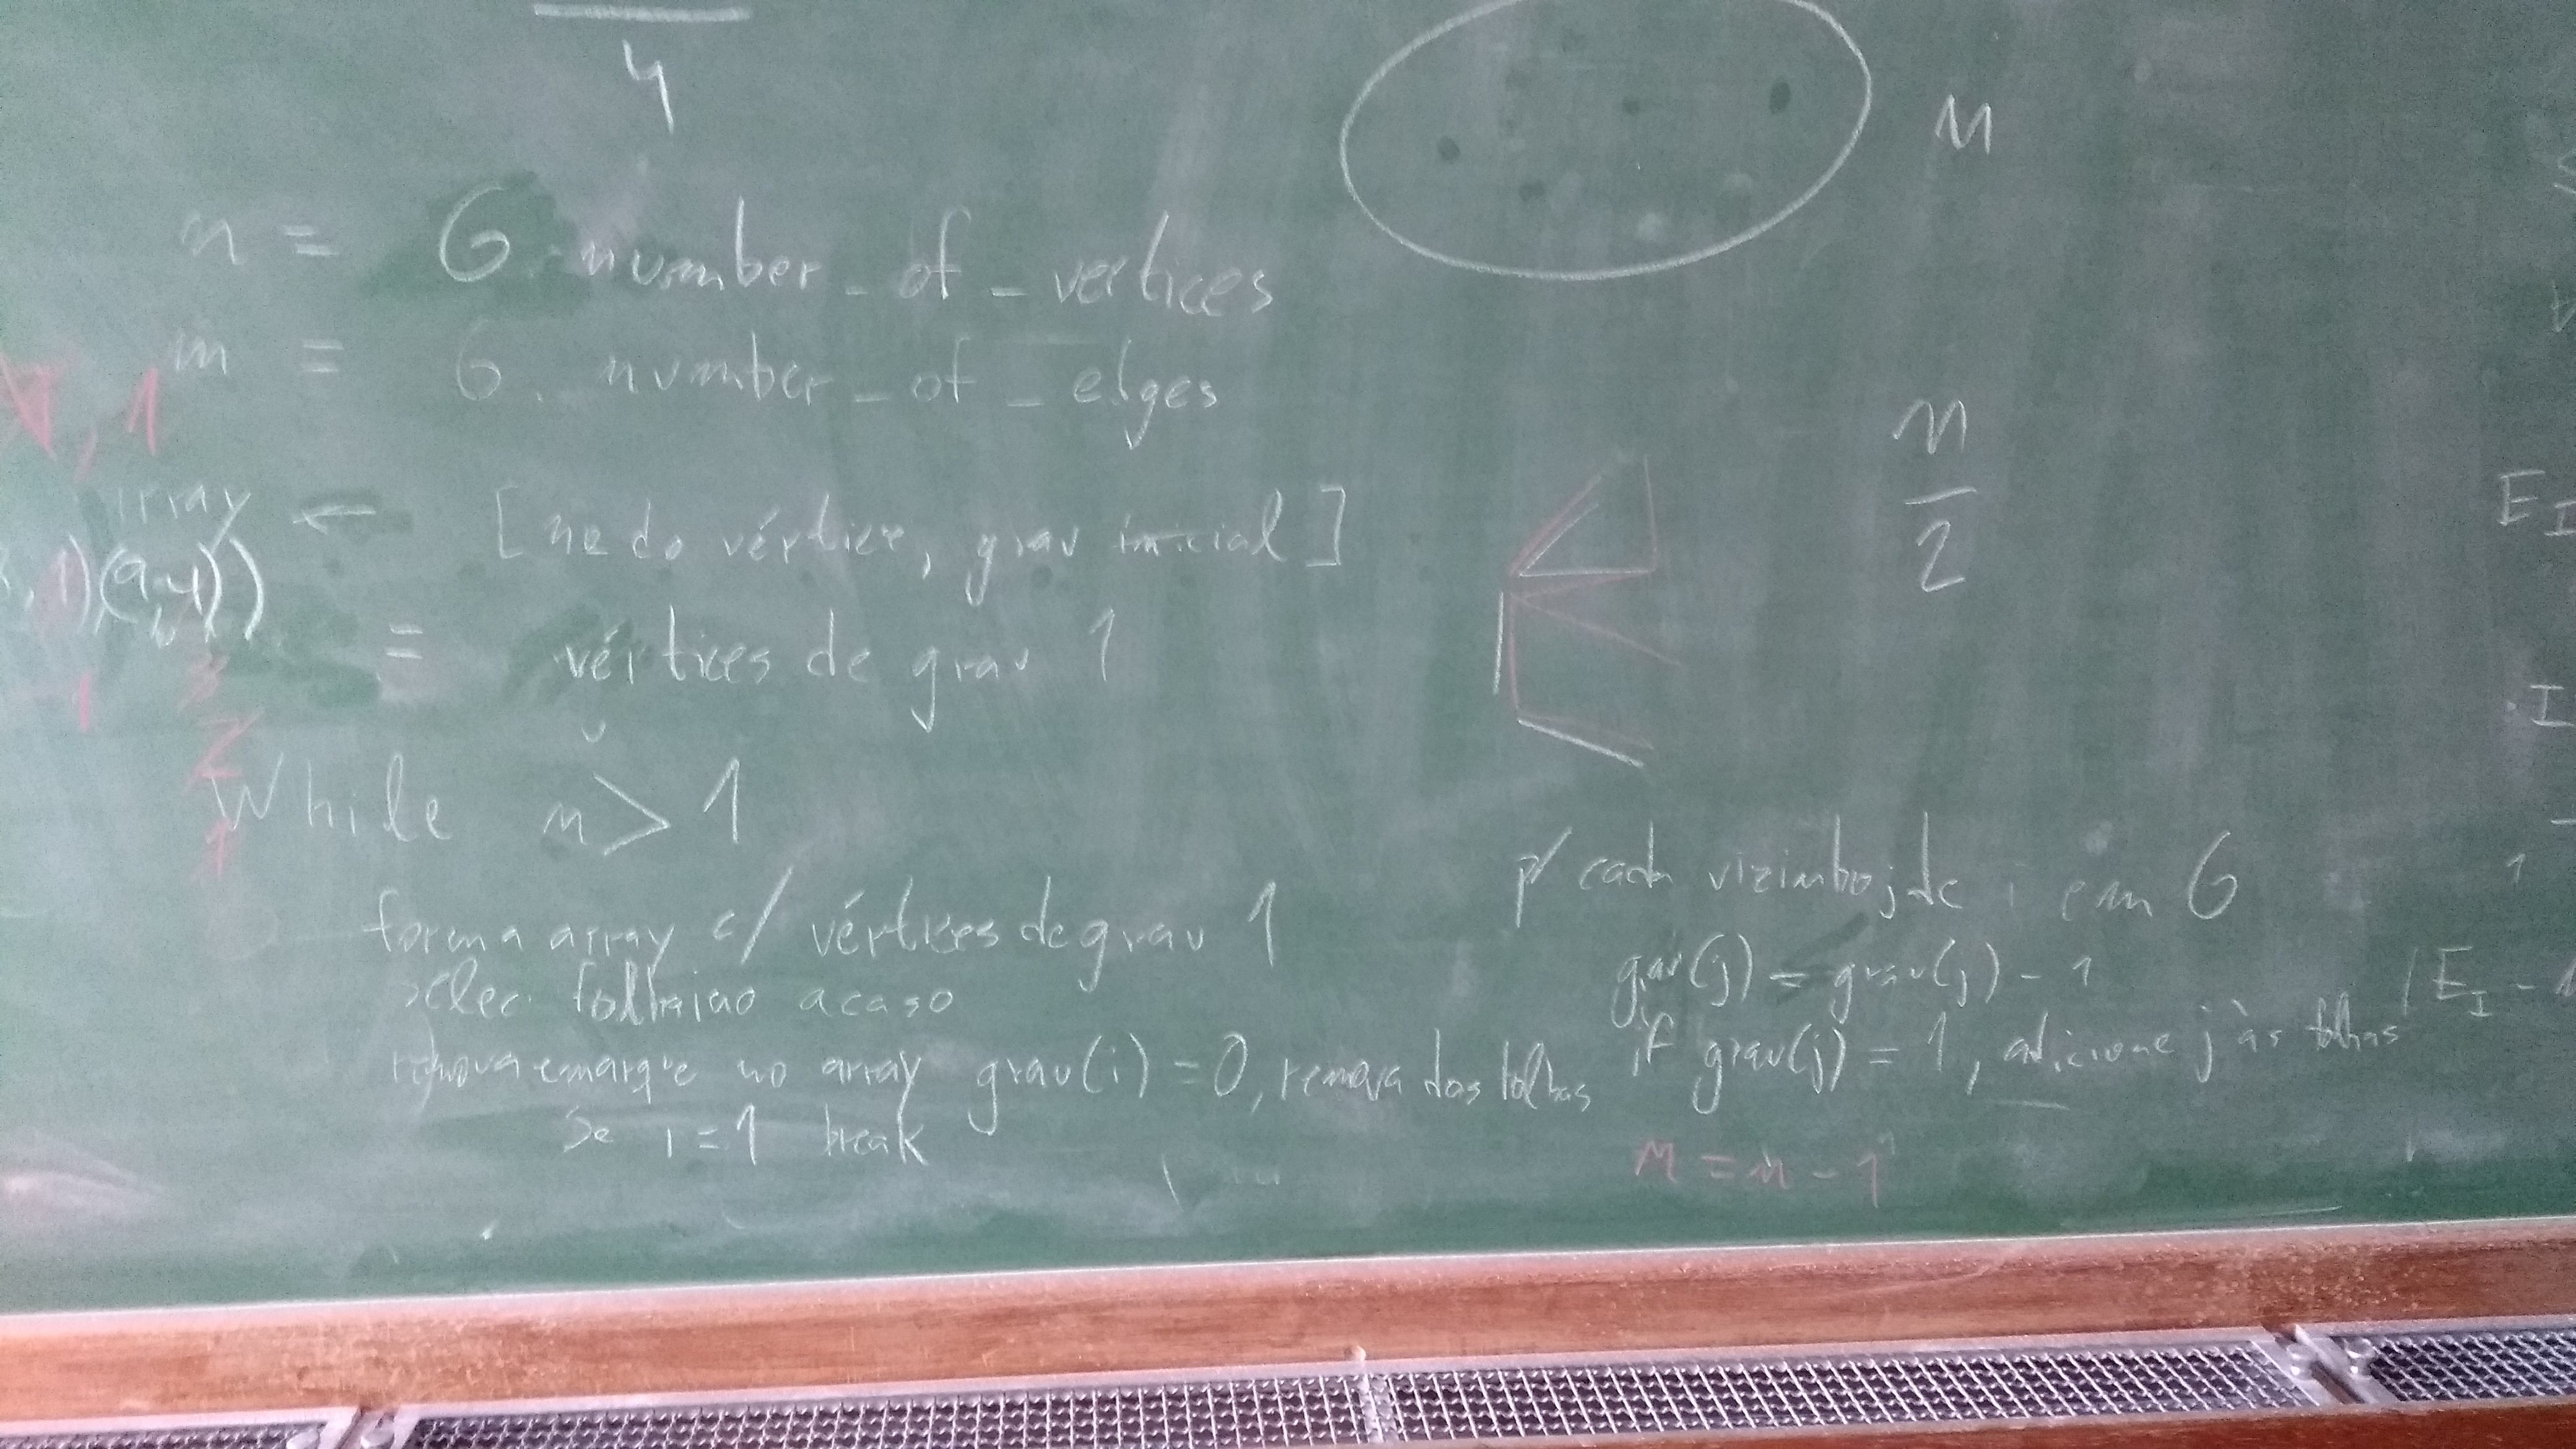 4
n
n = G. number_of_vertices
m = G. number_of_edges
, 1
n
2
array ← [ne do vértice, grau inicial]
= vértices de grau 1
1
2
1
While n > 1
forma array c/ vértices de grau 1
selec. folha i ao acaso
remova e marque no array grau(i) = 0, remova das folhas
se i = 1 break
p/ cada vizinho j de i em G
grau(j) = grau(j) - 1
if grau(j) = 1, adicione j às folhas
n = n - 1
E_I
I
1
E_I -